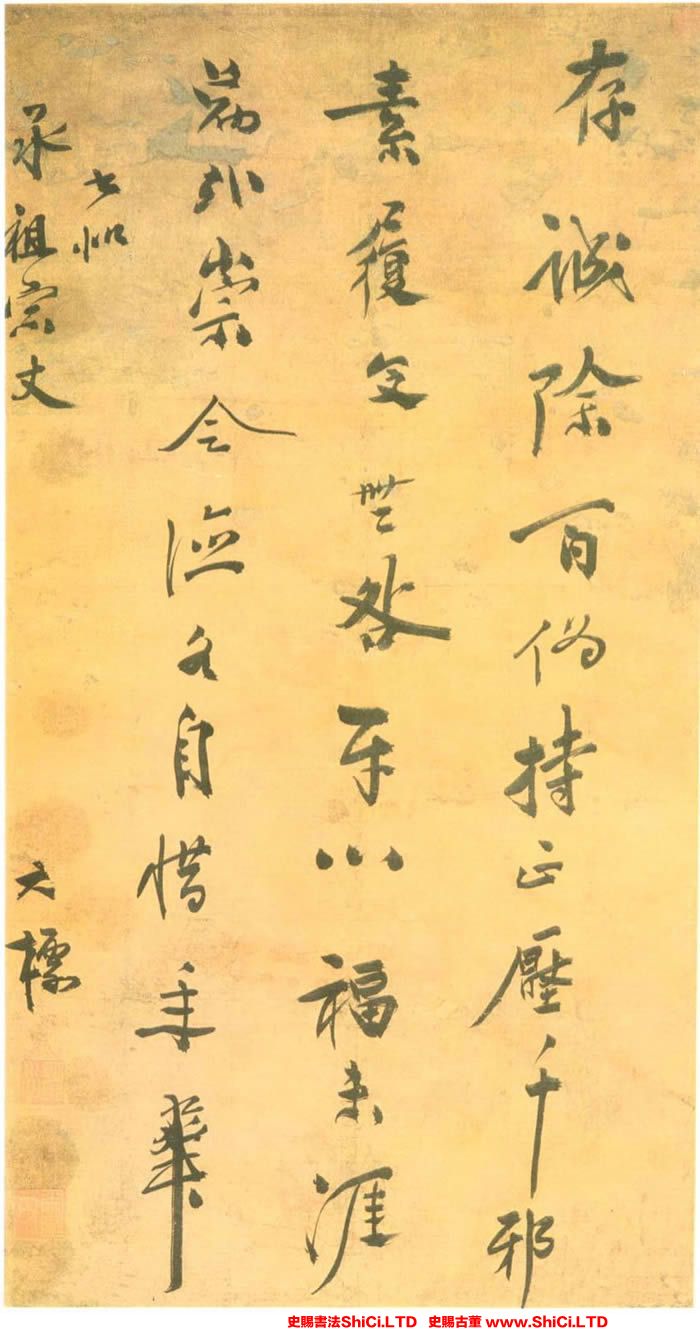 存誠除百偽持正壓千邪
素履無咎平心福未涯
勗哉崇令德各自惜年華
書似
承祖宗丈
大
史賜書法ShiCi.LTD 史賜古董 www.ShiCi.LTD